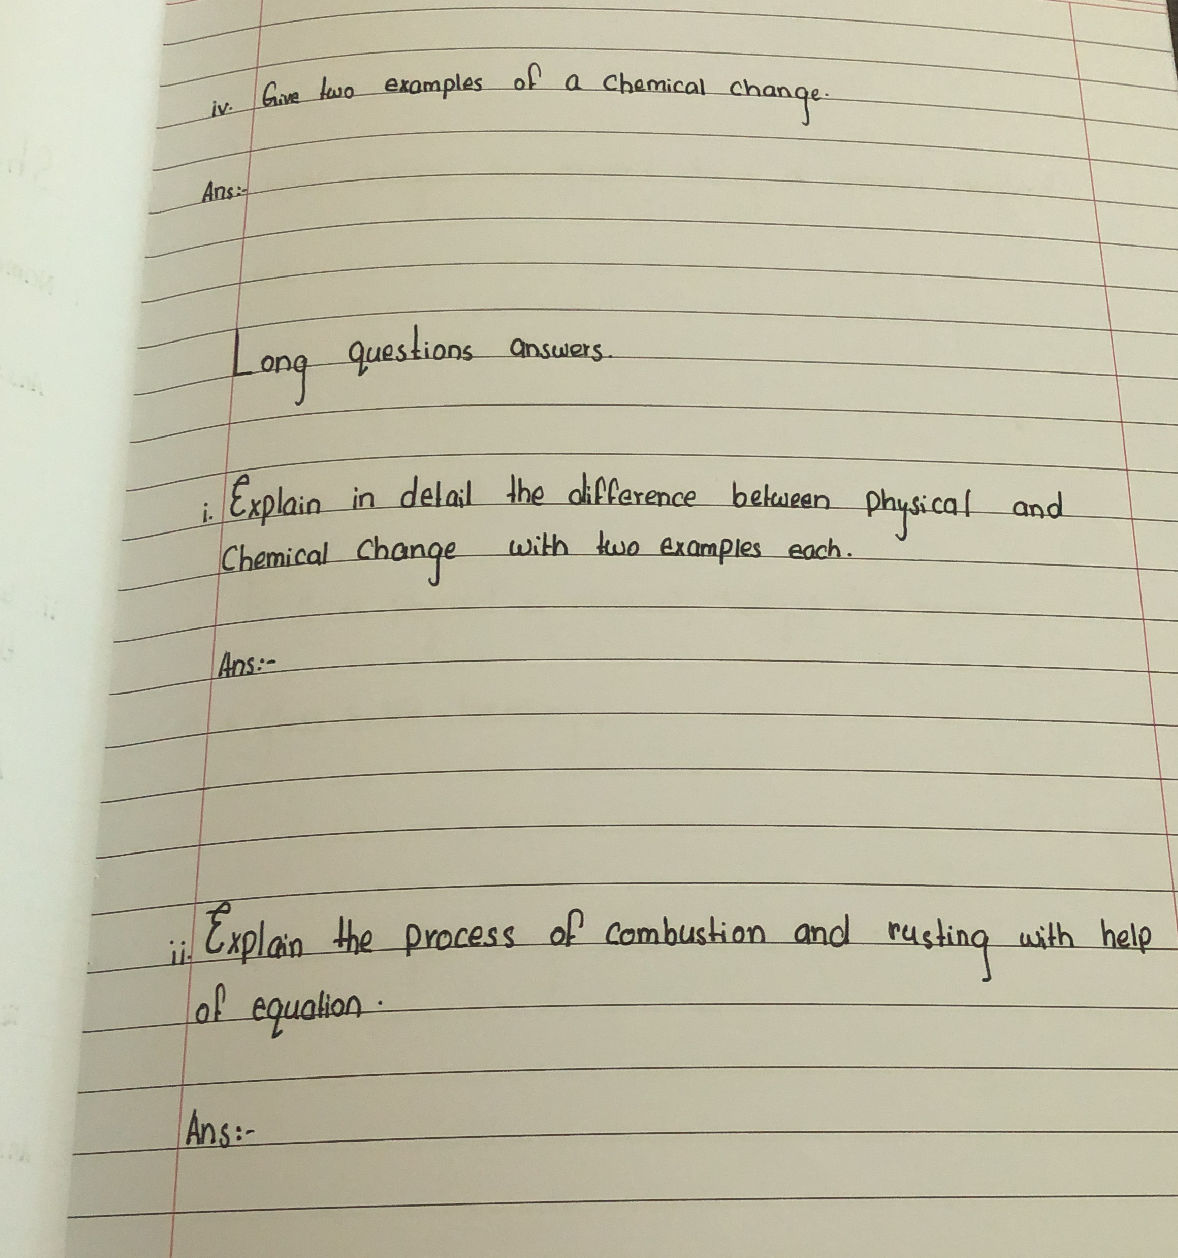 iv. Give two examples of a chemical change.
Ans:-
Long questions answers.
i. Explain in detail the difference between physical and
Chemical change with two examples each.
Ans:-
ii. Explain the process of combustion and rusting with help
of equation.
Ans:-